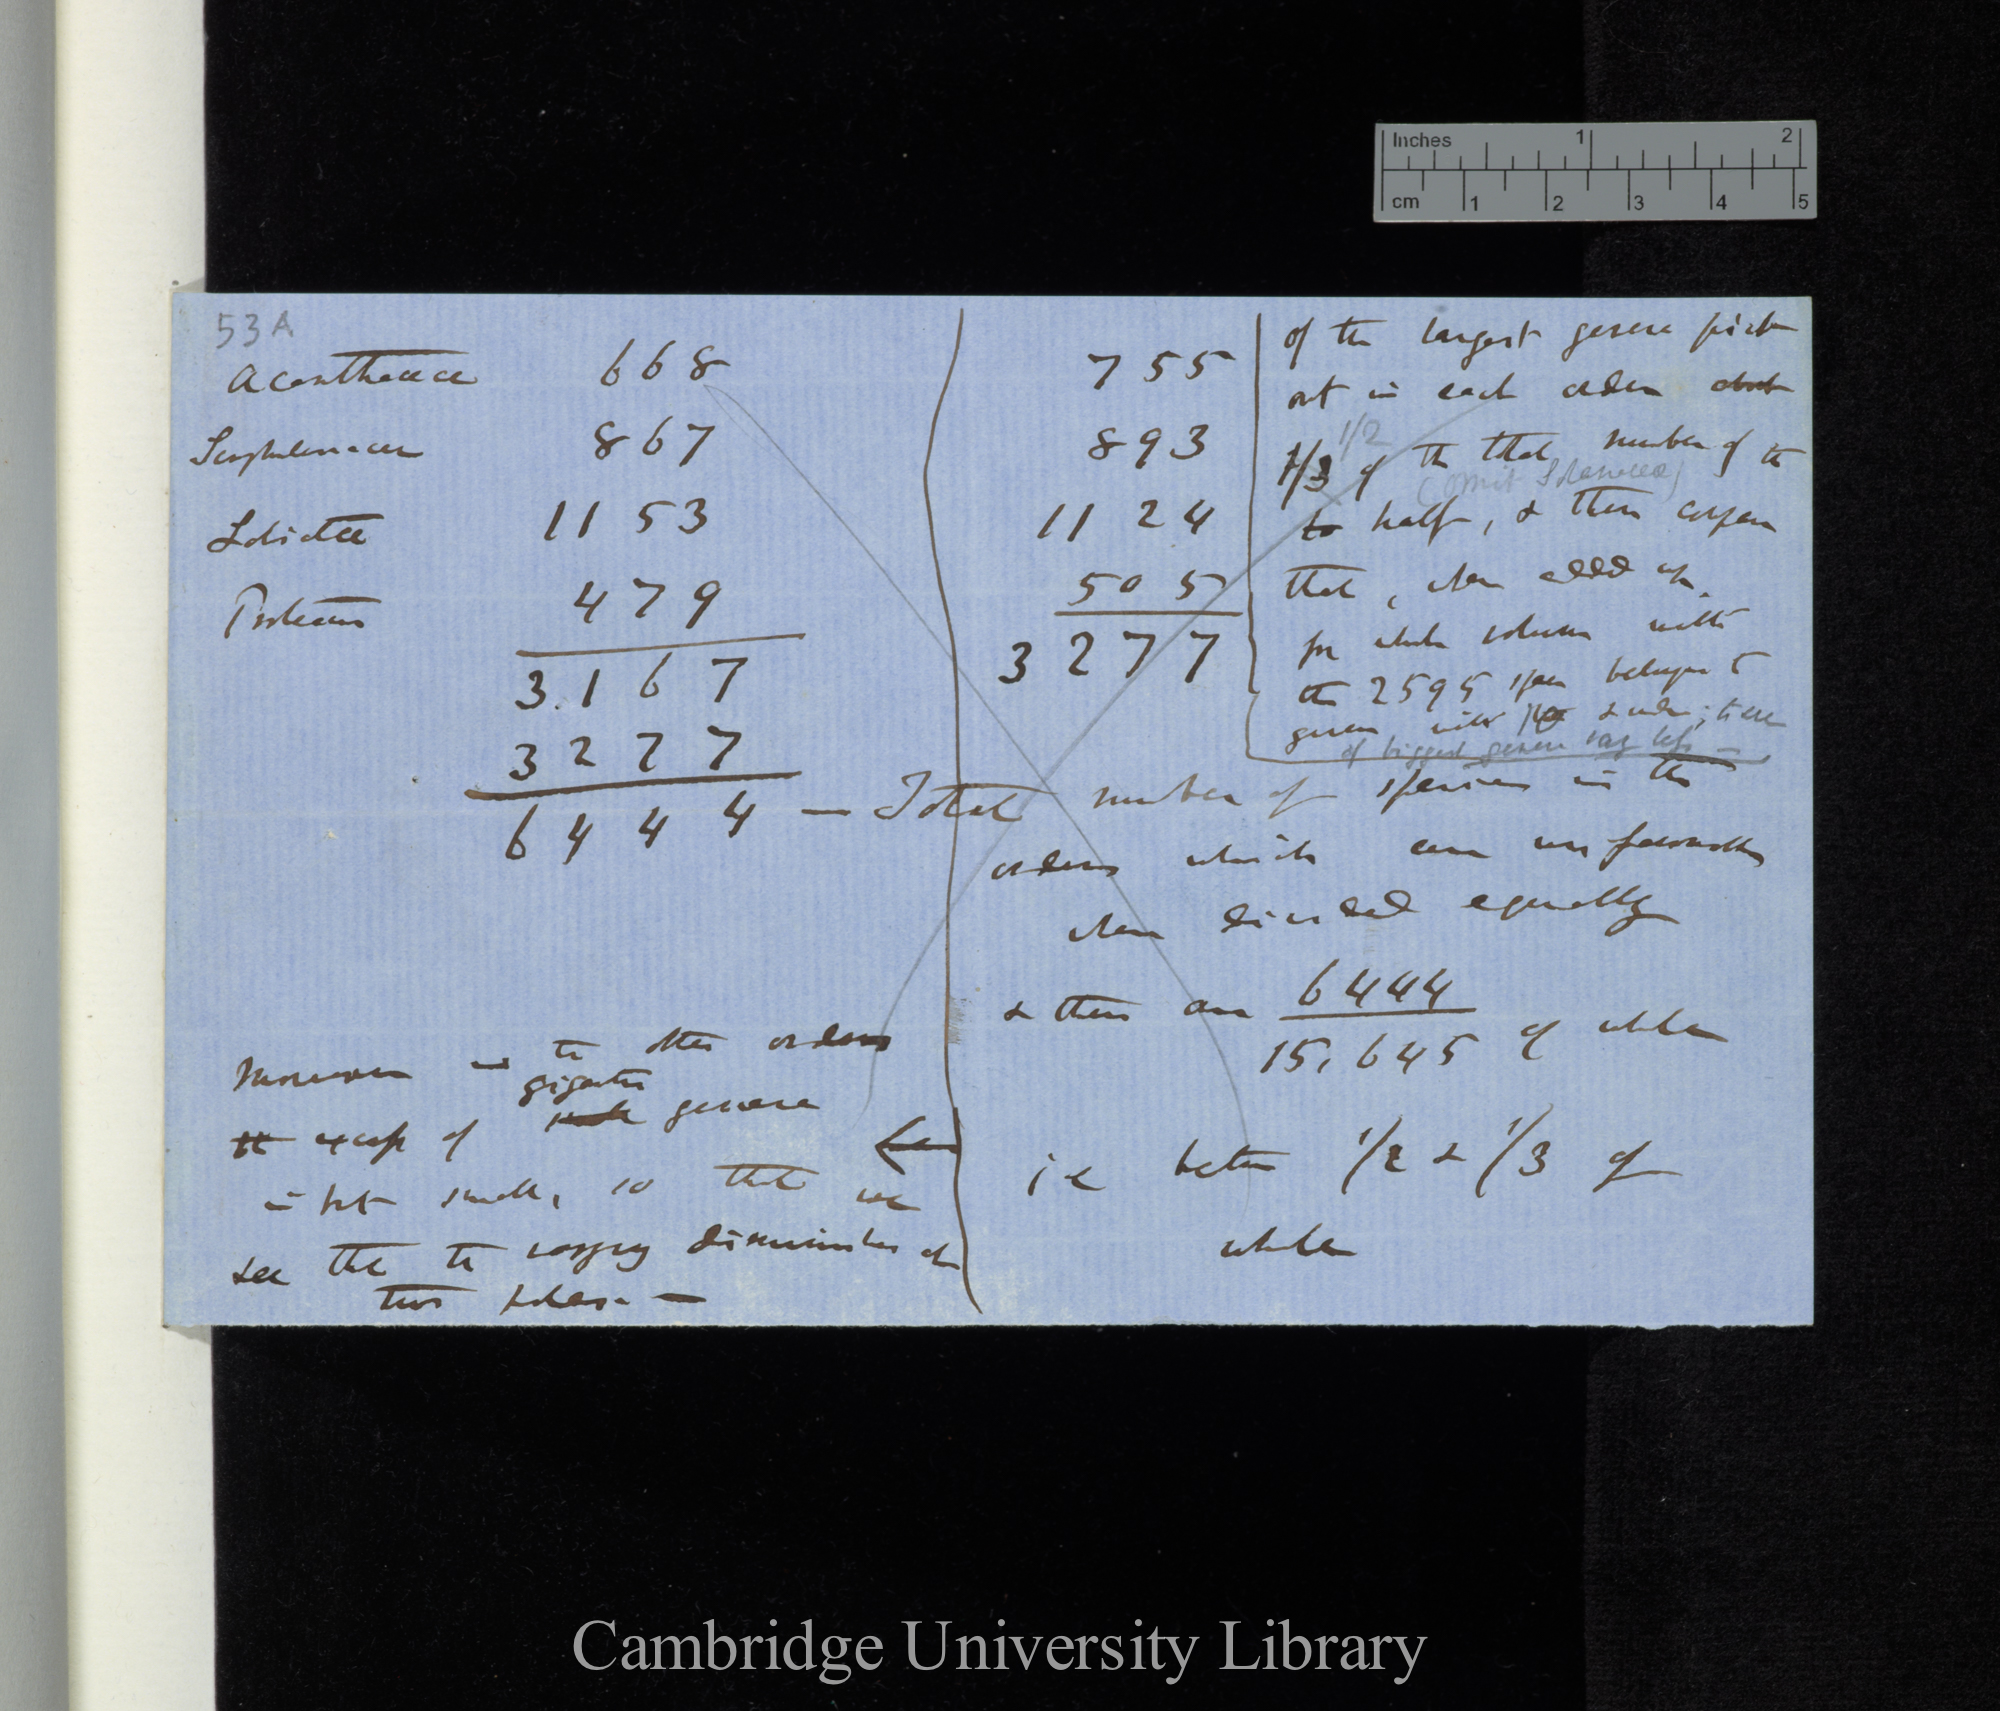 Inches 1 2
cm 1 2 3 4 5
53A
Acanthaceæ 668
Scrophulariaceæ 867
Labiatæ 1153
Proteaceæ 479
3.167
3277
6444 — Total number of species in the
755
893
1124
505
3277
of the largest genera pick
out in each order about
1/2
1/3 of the total number of the
(omit Solanaceæ)
to half, & then compare
that, when added up
for whole column with
the 2595 species belonging to
genera with 10 & under; these
of biggest genera vary less —
orders which are unfavourable
when divided equally
& there are 6444
15,645 of whole
ie between 1/2 & 1/3 of
whole
Moreover in the other orders
gigantic
the excess of genera
is but small, so that we
see that the varying diminishes at
two poles. —
Cambridge University Library